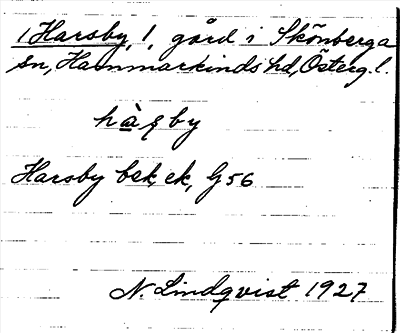 /Harsby, /, gård i Skönberga
sn, Hammarkinds hd, Österg. l.
hàʂby
Harsby bek. ek, G56
N. Lindqvist 1927